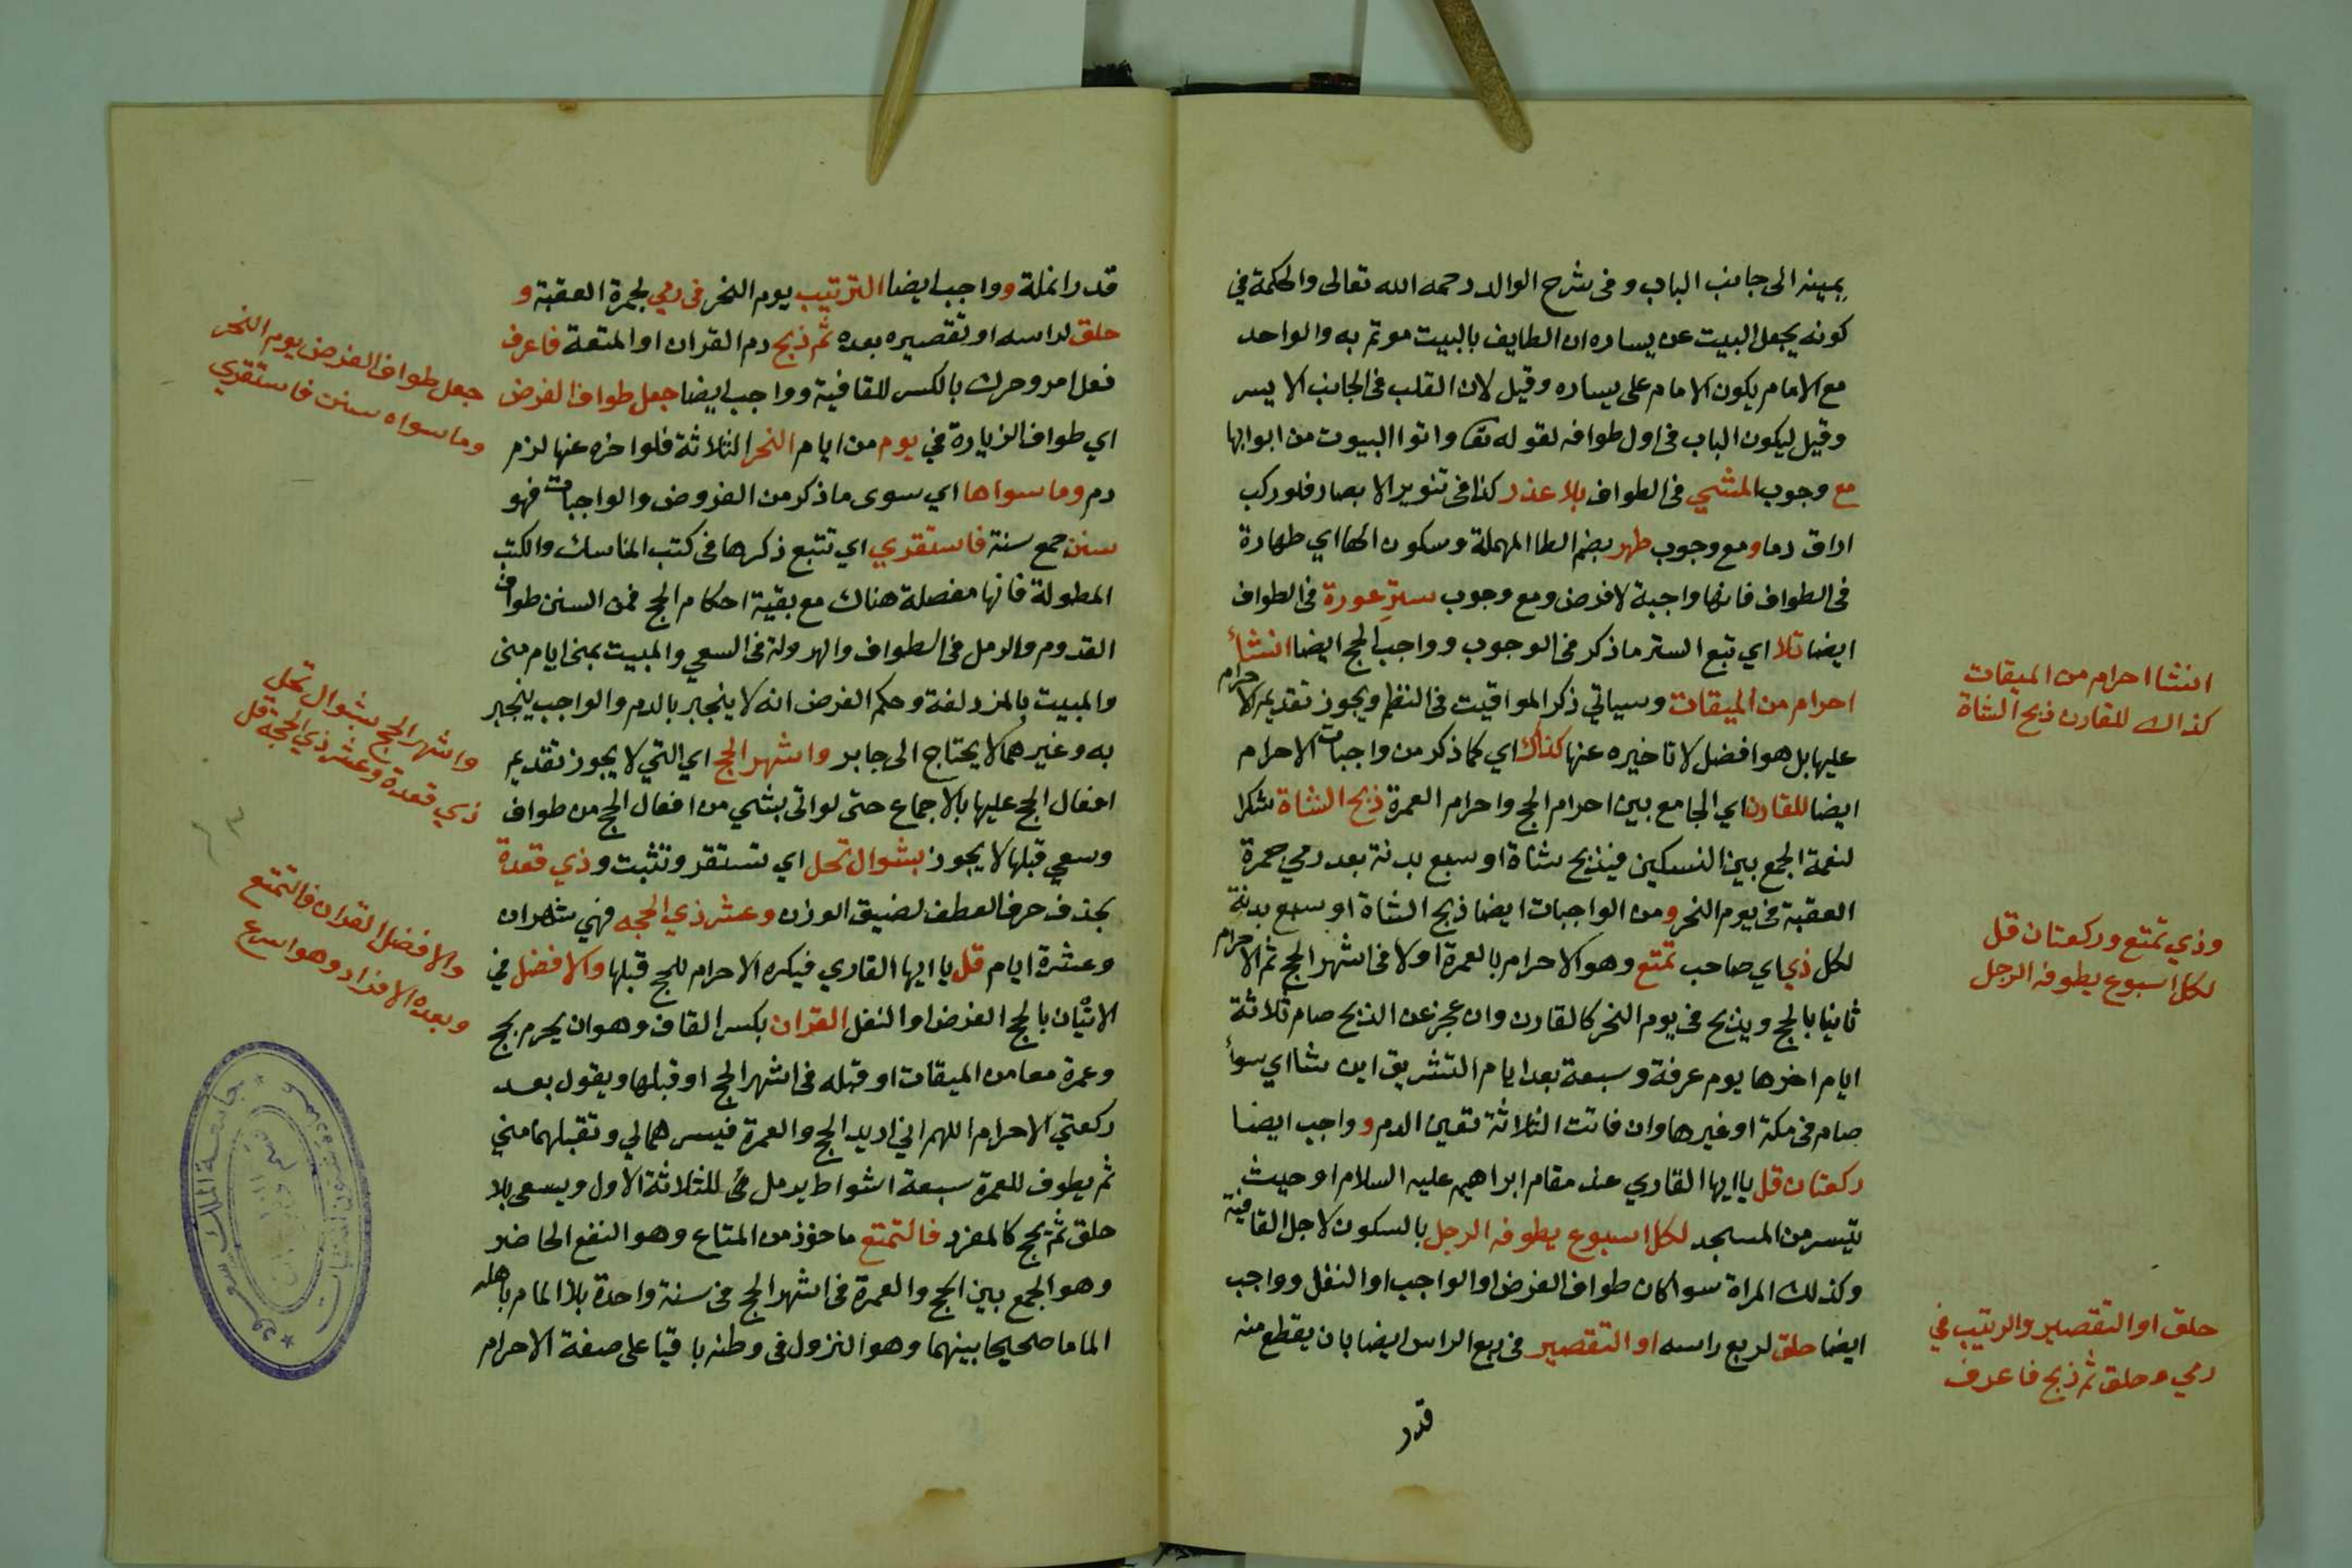 بيمينه الى جانب الباب وفى شرح الوالد رحمه الله تعالى والحكمة في
كونه يجعل البيت عن يساره ان الطايف بالبيت موتم به والواحد
مع الامام يكون الامام على يساره وقيل لان القلب فى الجانب الايسر
وقيل ليكون الباب فى اول طوافه لقوله تعا واتوا البيوت من ابوابها
مع وجوب المشي فى الطواف بلا عذر كذا فى تنوير الابصار فلو ركب
اراق دما ومع وجوب طهر بضم الطا المهملة وسكون الها اي طهارة
فى الطواف فانها واجبة لا فرض ومع وجوب ستر عورة فى الطواف
ايضا تلا اي تبع الستر ما ذكر فى الوجوب وواجب الحج ايضا انشأ
احرام من الميقات وسياتي ذكر المواقيت فى النظم ويجوز تقديم الاحرام
عليها بل هو افضل لا تاخيره عنها كذاك اي كما ذكر من واجبات الاحرام
ايضا للقارن اي الجامع بين احرام الحج واحرام العمرة ذبح الشاة شكرا
لنعمة الجمع بين النسكين فيذبح شاة او سبع بدنة بعد رمي جمرة
العقبة فى يوم النحر ومن الواجبات ايضا ذبح الشاة او سبع بدنة
لكل ذي اي صاحب تمتع وهو الاحرام بالعمرة اولا فى اشهر الحج ثم الاحرام
ثانيا بالحج ويذبح فى يوم النحر كالقارن وان عجز عن الذبح صام ثلاثة
ايام اخرها يوم عرفة وسبعة بعد ايام التشريق اين شا اي سوأ
صام فى مكة او غيرها وان فاتت الثلاثة تعين الدم وواجب ايضا
ركعتان قل يا ايها القاري عند مقام ابراهيم عليه السلام او حيث
تيسر من المسجد لكل اسبوع يطوفه الرجل بالسكون لاجل القافية
وكذلك المراة سوا كان طواف الفرض او الواجب او النفل وواجب
ايضا حلق لربع راسه او التقصير فى ربع الراس ايضا بان يقطع منه
قدر
انشا احرام من الميقات
كذاك للقارن ذبح الشاة
وذي تمتع وركعتان قل
لكل اسبوع يطوفه الرجل
حلق او التقصير والترتيب في
رمي وحلق ثم ذبح فاعرف
قدر انملة وواجب ايضا الترتيب يوم النحر فى رمي لجمرة العقبة و
حلق لراسه او تقصيره بعده ثم ذبح دم القران او المتعة فاعرف
فعل امر وحرك بالكسر للقافية وواجب ايضا جعل طواف الفرض
اي طواف الزيارة في يوم من ايام النحر الثلاثة فلو اخره عنها لزم
دم وما سواها اي سوى ما ذكر من الفروض والواجبات فهو
سنن جمع سنة فاستقري اي تتبع ذكرها فى كتب المناسك والكتب
المطولة فانها مفصلة هناك مع بقية احكام الحج فمن السنن طواف
القدوم والرمل فى الطواف والهرولة فى السعي والمبيت بمنى ايام منى
والمبيت بالمزدلفة وحكم الفرض انه لا ينجبر بالدم والواجب ينجبر
به وغيرهما لا يحتاج الى جابر واشهر الحج اي التي لا يجوز تقديم
افعال الحج عليها بالاجماع حتى لو اتى بشي من افعال الحج من طواف
وسعي قبلها لا يجوز بشوال تحل اي تستقر وتثبت وذي قعدة
بحذف حرف العطف لضيق الوزن وعشر ذي الحجه فهي شهران
وعشرة ايام قل يا ايها القاري فيكره الاحرام للحج قبلها والافضل في
الاتيان بالحج الفرض او النفل القران بكسر القاف وهو ان يحرم بحج
وعمرة معا من الميقات او قبله فى اشهر الحج او قبلها ويقول بعد
ركعتي الاحرام اللهم اني اريد الحج والعمرة فيسرهما لي وتقبلهما مني
ثم يطوف للعمرة سبعة اشواط يرمل فى للثلاثة الاول ويسعى بلا
حلق ثم يحج كالمفرد فالتمتع ماخوذ من المتاع وهو النفع الحاضر
وهو الجمع بين الحج والعمرة فى اشهر الحج فى سنة واحدة بلا المام باهله
الماما صحيحا بينهما وهو النزول فى وطنه باقيا على صفة الاحرام
جعل طواف الفرض يوم النحر
وما سواه سنن فاستقري
واشهر الحج بشوال تحل
ذي قعدة وعشر ذي الحجة قل
والافضل القران فالتمتع
وبعده الافراد وهو اسرع
جامعة الملك سعود